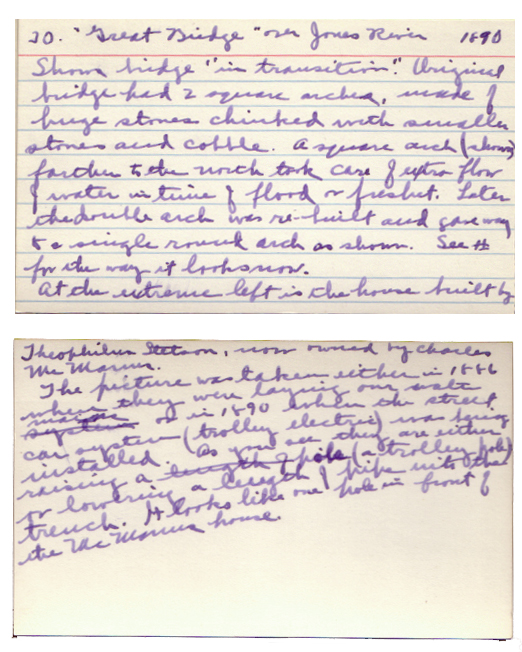 20. "Great Bridge" over Jones River 1890
Shows bridge "in transition". Original
bridge had 2 square arches, made of
huge stones chinked with smaller
stones and cobble. A square arch (shown)
farther to the north took care of extra flow
of water in time of flood or freshet. Later
the double arch was re-built and gave way
to a single round arch as shown. See #
for the way it looks now.
At the extreme left is the house built by
Theophilus Stetson, now owned by Charles
Mc Manus.
The picture was taken either in 1886
when they were laying our water
system or in 1890 when the street
car system (trolley electric) was being
installed. As you see they are either
raising a length of pole (a trolley pole)
or lowering a length of pipe into that
trench. It looks like one pole in front of
the Mc Manus house.